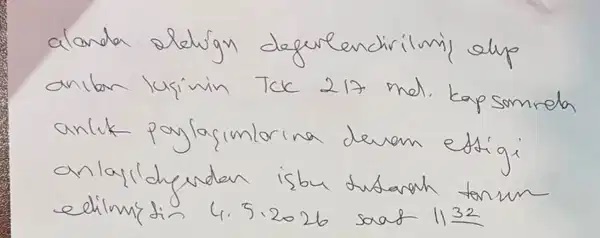 alanda olduğu değerlendirilmiş olup
anılan kişinin TCK 217 md. kapsamında
anlık paylaşımlarına devam ettiği
anlaşıldığından işbu tutanak tanzim
edilmiştir 4.5.2026 saat 11 32